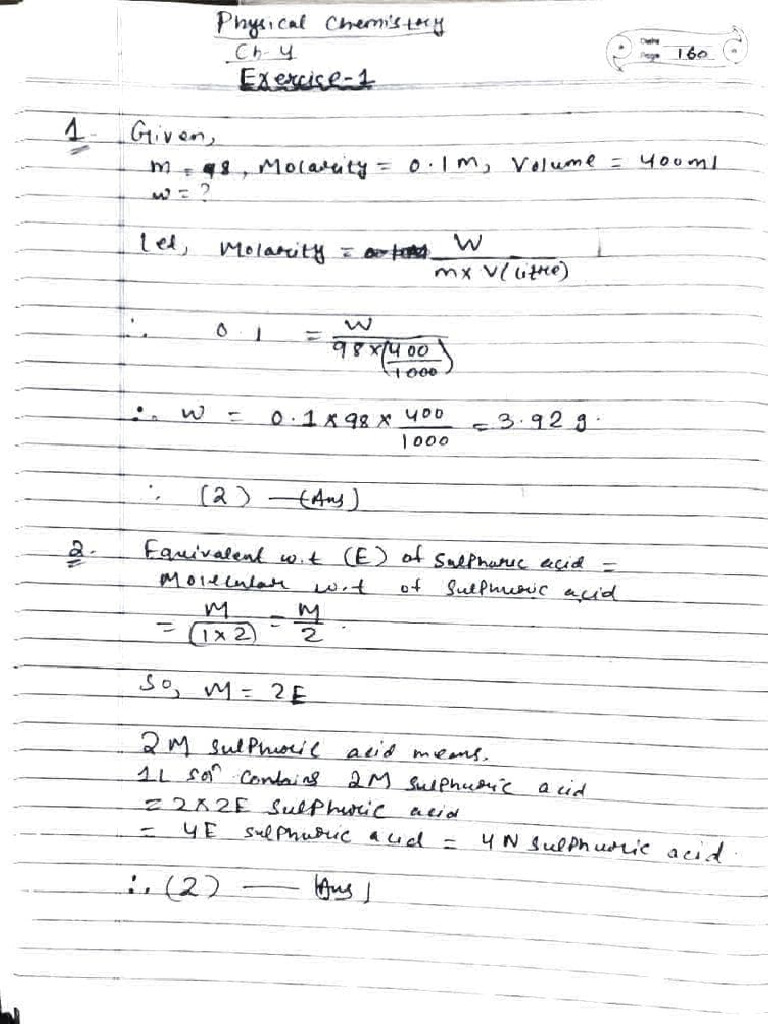 Physical Chemistry
Ch-4
Exercise-1
Page 160
1. Given,
m = 98, Molarity = 0.1m, Volume = 400ml
w = ?
let, Molarity = W / m x V(litre)
∴ 0.1 = w / 98 x (400/1000)
∴ w = 0.1 x 98 x 400/1000 = 3.92 g.
∴ (2) — (Ans)
2. Equivalent w.t (E) of Sulphuric acid =
Molecular w.t of Sulphuric acid
= M/(1x2) = M/2.
So, M = 2E
2M sulphuric acid means.
1L sol^n contains 2M sulphuric acid
= 2x2E Sulphuric acid
= 4E sulphuric acid = 4N sulphuric acid.
∴ (2) — (Ans)